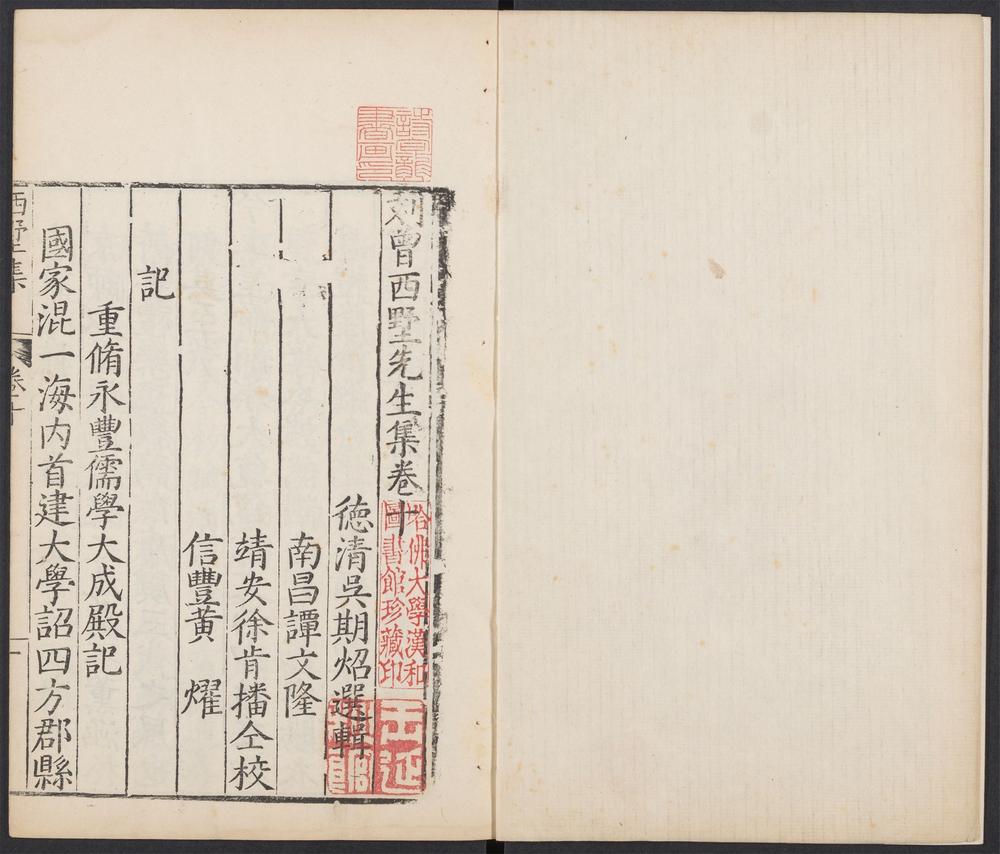 刻曾西墅先生集卷十
德清吳期炤選輯
南昌譚文隆
靖安徐肯播仝校
信豐黃　燿
記
重脩永豐儒學大成殿記
國家混一海内首建大學詔四方郡縣
西墅集　卷十　一
哈佛大學漢和
圖書館珍藏印